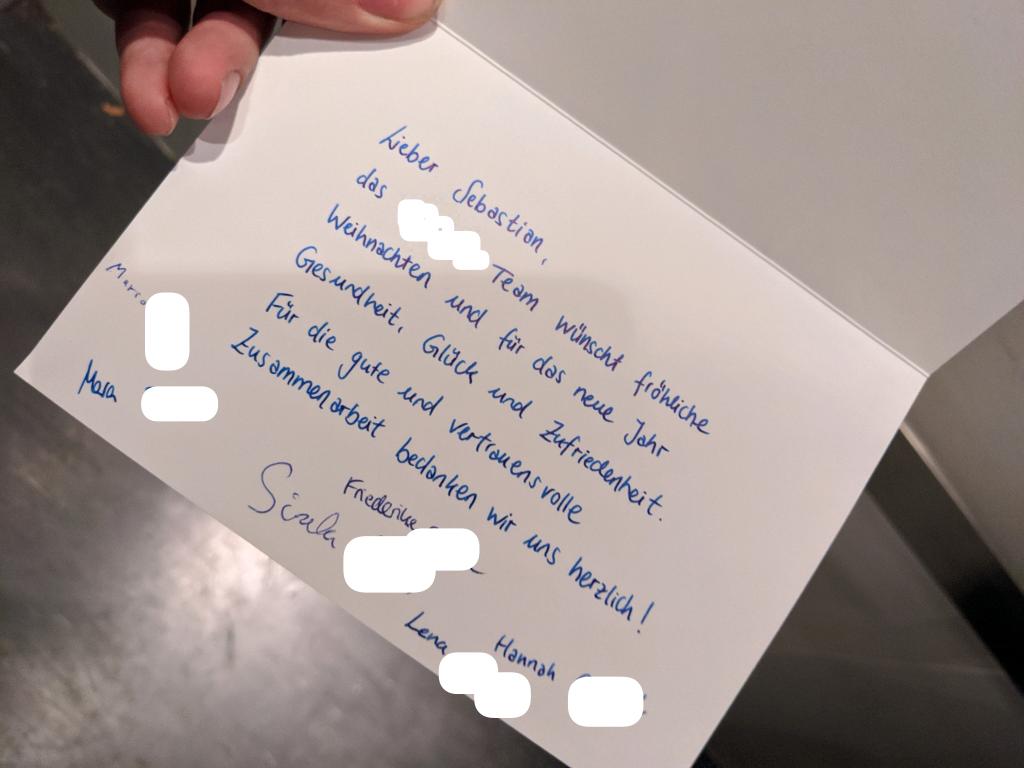 Lieber Sebastian,
das Team wünscht fröhliche
Weihnachten und für das neue Jahr
Gesundheit, Glück und Zufriedenheit.
Für die gute und vertrauensvolle
Zusammenarbeit bedanken wir uns herzlich!
Maria
Mara
Friederike
Lena
Hannah